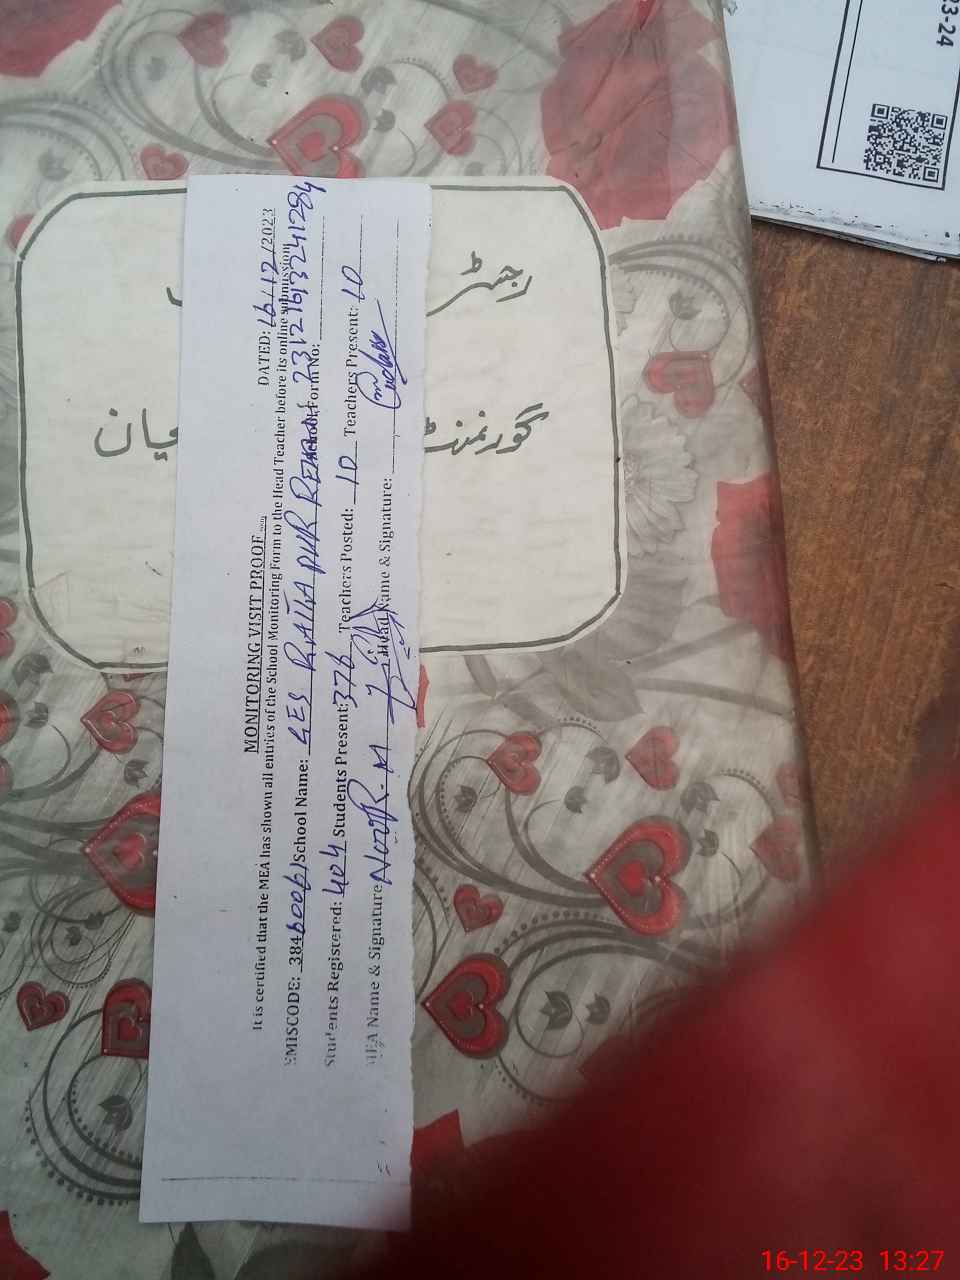 MONITORING VISIT PROOF
DATED: 16/12/2023
It is certified that the MEA has shown all entries of the School Monitoring Form to the Head Teacher before its online submission
EMISCODE: 38460061 School Name: GES RATTA PUR School Form No: 231216132341284
Students Registered: 404 Students Present: 376 Teachers Posted: 10 Teachers Present: 10
MEA Name & Signature Head Name & Signature:
رجسٹر
گورنمنٹ
23-24
16-12-23 13:27